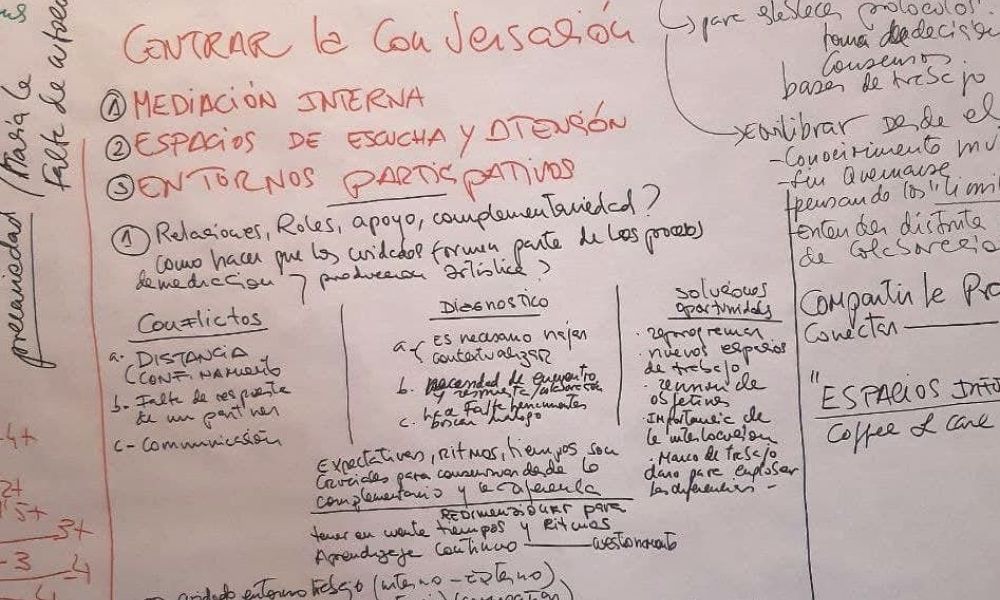 CENTRAR la Conversación
① MEDIACIÓN INTERNA
② ESPACIOS DE ESCUCHA Y ATENSIÓN
③ ENTORNOS PARTICIPATIVOS
① Relaciones, Roles, apoyo, complementariedad?
Como hacer que los cuidados formen parte de los procesos
de mediación y produccion artística?
Conflictos
a. DISTANCIA
(CONFINAMIENTO
b. Falta de respuesta
de un partner
c- Comunicación
Diagnostico
a. es necesario
contextualizar
b. necesidad de encuentro
c. hace falta
buscar dialogo
soluciones
oportunidades
· reprogramar
· nuevos espacios
de trabajo
· reunion de
objetivos
· Importancia de
la interlocucion
· Marco de trabajo
claro para explorar
las diferencias -
Expectativas, ritmos, tiempos son
cruciales para consensuar desde lo
complementario y la
REDIMENSIONAR para
tener en cuenta tiempos y Ritmos
Aprendizaje continuo
cuidado entorno trabajo (interno - externo)
para establecer protocolos.
toma de decisión
consensos
bases de trabajo
equilibrar desde el
- Conocimiento
- sin quemarse
pensando los "
entender distinta
de colaboracio
Compartir le Pro
Conectar
"ESPACIOS INFO
Coffee & care
precariedad
(Hacia la
falta de
4+
2+
5+
3+
-3
-4